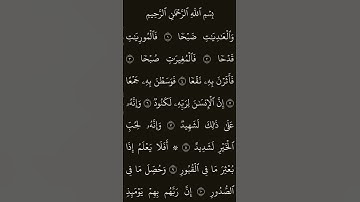 بِسْمِ ٱللَّهِ ٱلرَّحْمَٰنِ ٱلرَّحِيمِ
وَٱلْعَٰدِيَٰتِ ضَبْحًا ۝١ فَٱلْمُورِيَٰتِ
قَدْحًا ۝٢ فَٱلْمُغِيرَٰتِ صُبْحًا ۝٣
فَأَثَرْنَ بِهِۦ نَقْعًا ۝٤ فَوَسَطْنَ بِهِۦ جَمْعًا
۝٥ إِنَّ ٱلْإِنسَٰنَ لِرَبِّهِۦ لَكَنُودٌ ۝٦ وَإِنَّهُۥ
عَلَىٰ ذَٰلِكَ لَشَهِيدٌ ۝٧ وَإِنَّهُۥ لِحُبِّ
ٱلْخَيْرِ لَشَدِيدٌ ۝٨ ۞ أَفَلَا يَعْلَمُ إِذَا
بُعْثِرَ مَا فِى ٱلْقُبُورِ ۝٩ وَحُصِّلَ مَا فِى
ٱلصُّدُورِ ۝١٠ إِنَّ رَبَّهُم بِهِمْ يَوْمَئِذٍ